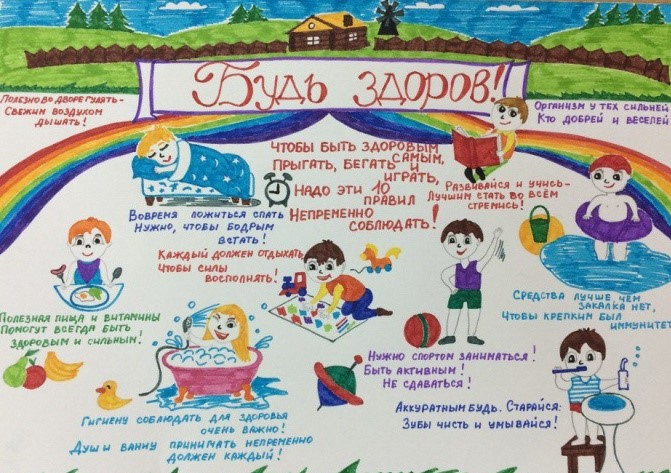 Будь здоров!
Полезно во дворе гулять-
Свежим воздухом
дышать!
Организм у тех сильней
Кто добрей и веселей
Чтобы быть здоровым
самым,
Прыгать, бегать и
играть,
Надо эти 10
правил
Непременно
соблюдать!
Развивайся и учись-
Лучшим стать во всём
стремись!
Вовремя ложиться спать
Нужно, чтобы бодрым
встать!
Каждый должен отдыхать,
Чтобы силы
восполнять!
Средства лучше, чем
закалка нет,
Чтобы крепким был
иммунитет
Полезная пища и витамины
Помогут всегда быть
здоровым и сильным!
Нужно спортом заниматься!
Быть активным!
Не сдаваться!
Гигиену соблюдать для здоровья
очень важно!
Душ и ванну принимать непременно
должен каждый!
Аккуратным будь. Старайся:
Зубы чисть и умывайся!